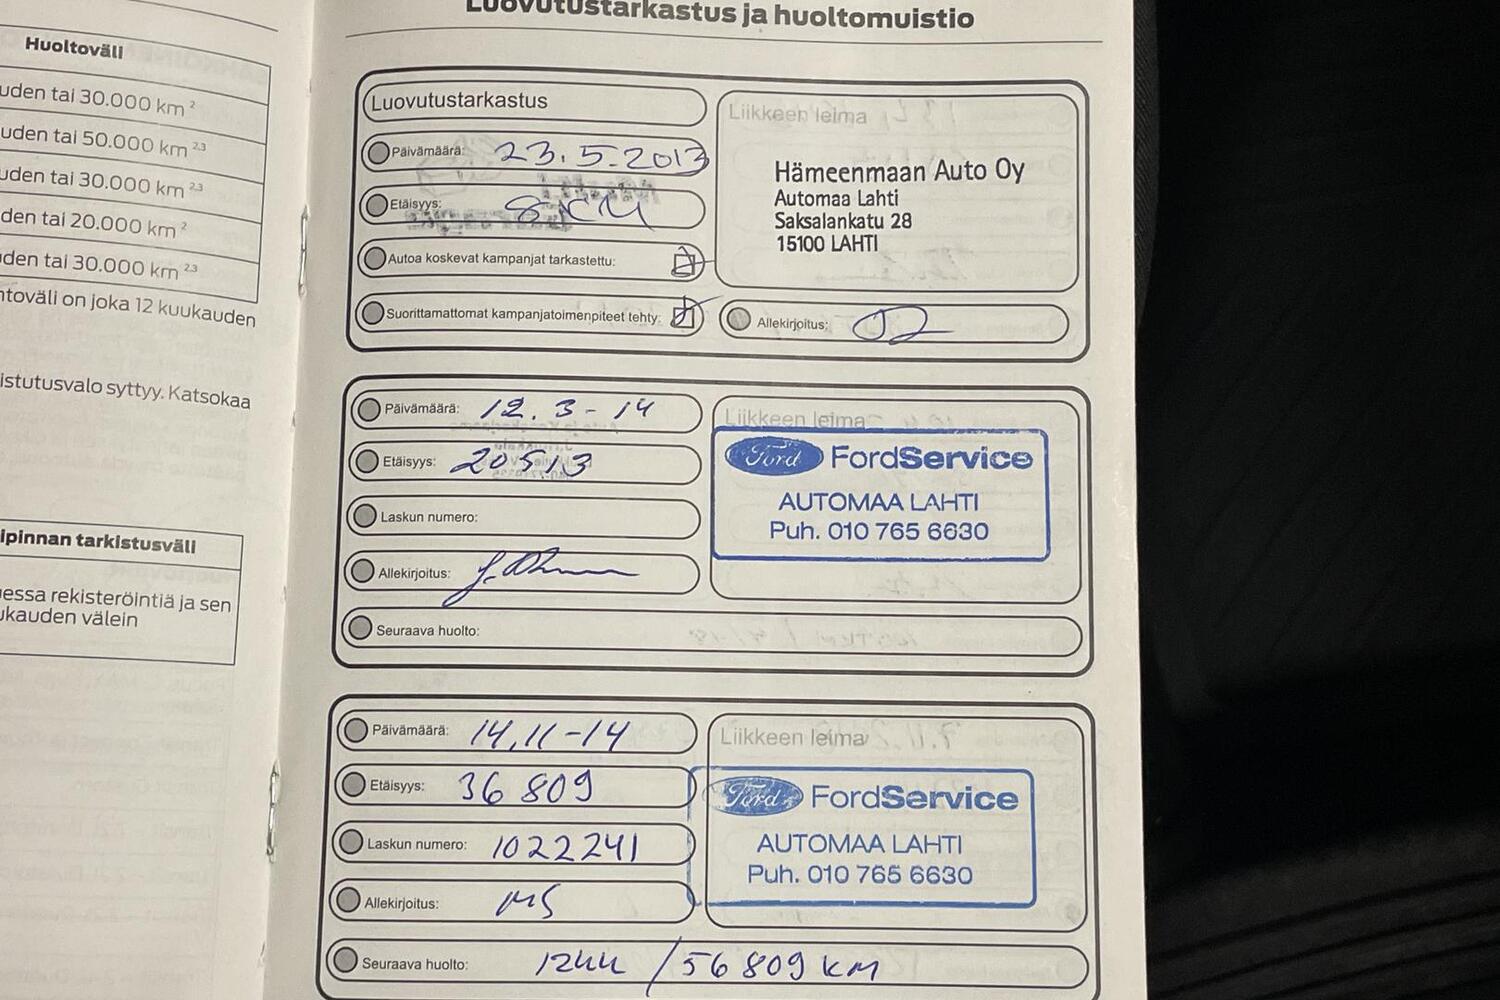 Huoltoväli
uden tai 30.000 km 2
uden tai 50.000 km 2,3
uden tai 30.000 km 2,3
den tai 20.000 km 2
den tai 30.000 km 2,3
ntoväli on joka 12 kuukauden
istutusvalo syttyy. Katsokaa
ipinnan tarkistusväli
essa rekisteröintiä ja sen
ukauden välein
Luovutustarkastus ja huoltomuistio
Luovutustarkastus
Päivämäärä: 23.5.2013
Etäisyys: 8 KM
Autoa koskevat kampanjat tarkastettu:
Suorittamattomat kampanjatoimenpiteet tehty:
Liikkeen leima
Hämeenmaan Auto Oy
Automaa Lahti
Saksalankatu 28
15100 LAHTI
Allekirjoitus:
Päivämäärä: 12.3-14
Etäisyys: 20513
Laskun numero:
Allekirjoitus:
Seuraava huolto:
Liikkeen leima
Ford FordService
AUTOMAA LAHTI
Puh. 010 765 6630
Päivämäärä: 14.11-14
Etäisyys: 36 809
Laskun numero: 1022241
Allekirjoitus: MS
Seuraava huolto: 12kk / 56 809 KM
Liikkeen leima
Ford FordService
AUTOMAA LAHTI
Puh. 010 765 6630